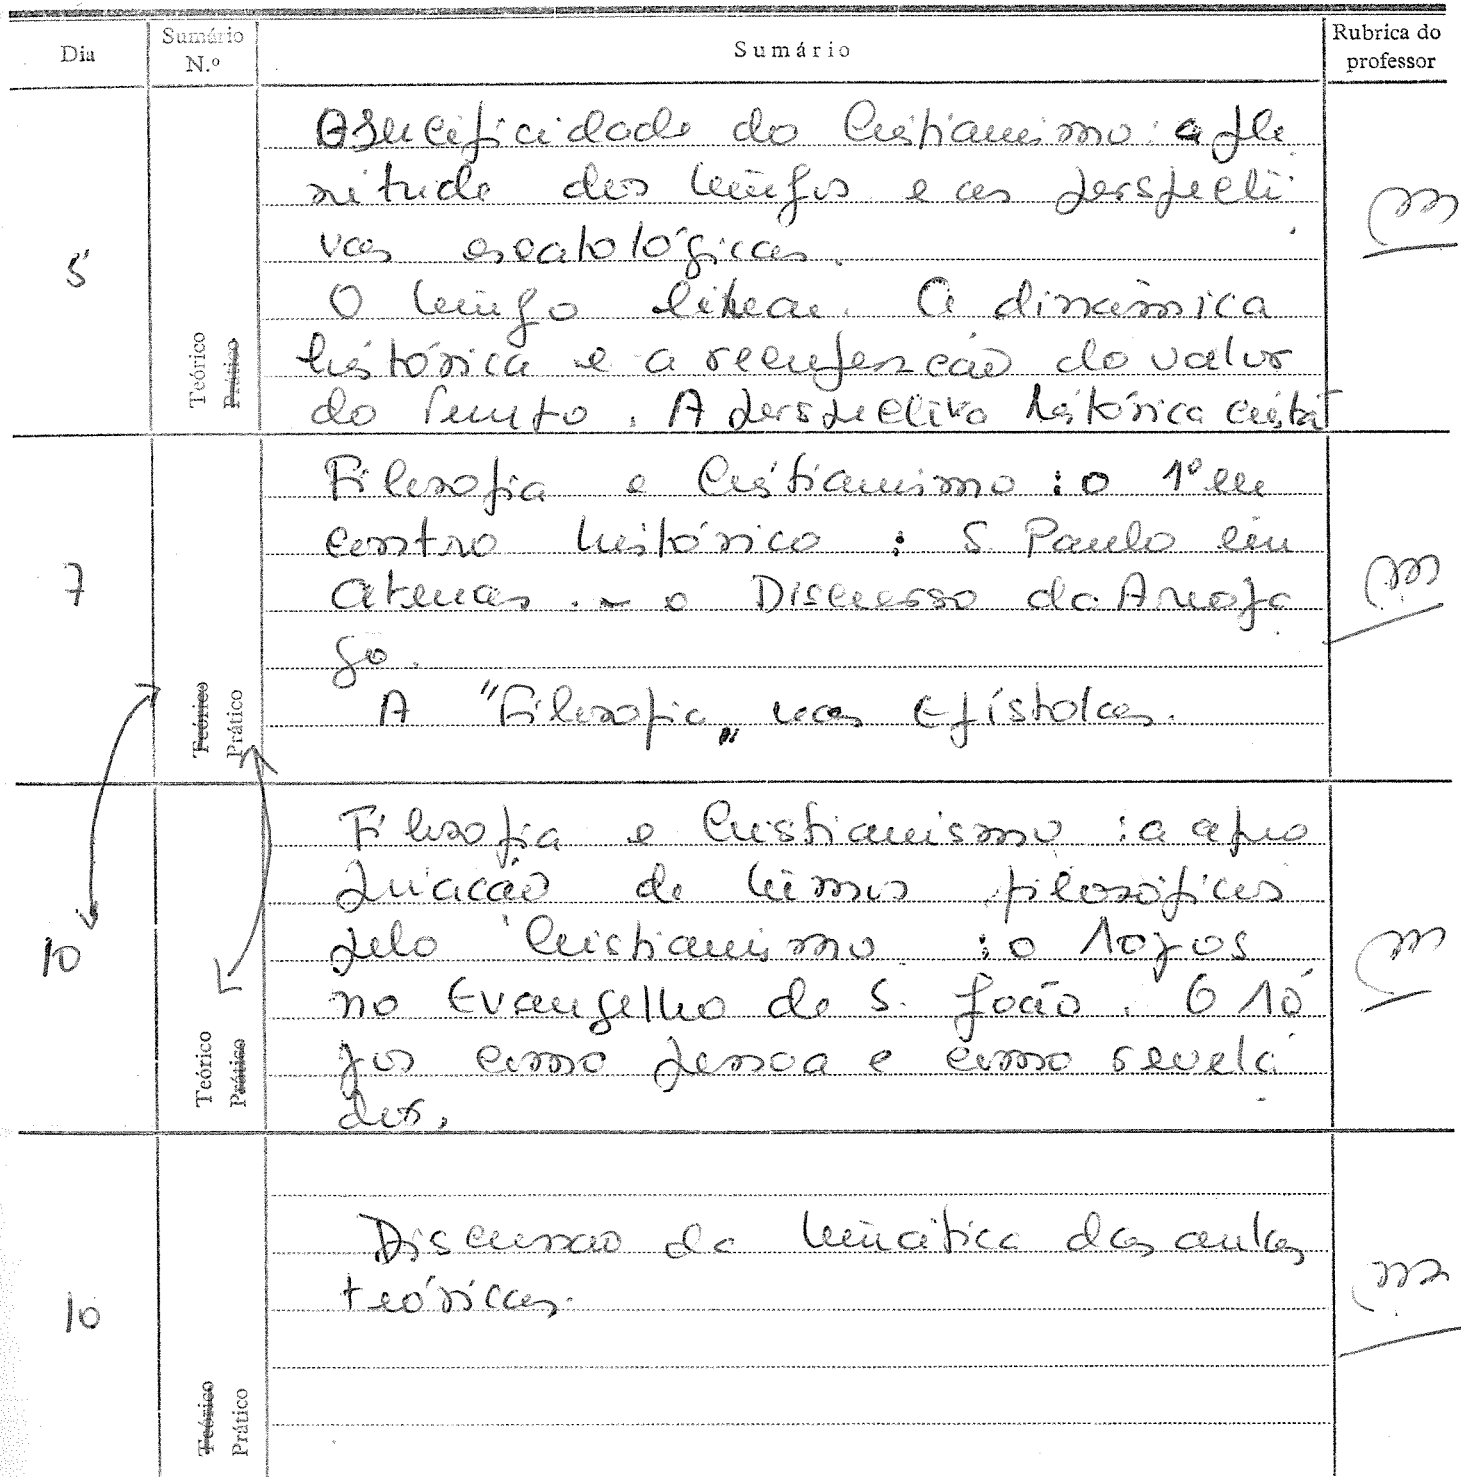 Dia
Sumário
N.º
Sumário
Rubrica do
professor
5
Teórico
Prático
A especificidade do Cristianismo: a ple
nitude dos tempos e as perspecti
vas escatológicas.
O tempo linear. A dinâmica
histórica e a recuperação do valor
do Tempo. A perspectiva histórica cristã
7
Teórico
Prático
Filosofia e Cristianismo: o 1º en
contro histórico: S. Paulo em
Atenas. - o Discurso do Areópa
go.
A "Filosofia" nas Epístolas.
10
Teórico
Prático
Filosofia e Cristianismo: a apro
priação de termos filosóficos
pelo Cristianismo: o λογος
no Evangelho de S. João. O λó
γος como pessoa e como revela
dor.
10
Teórico
Prático
Discussão da temática das aulas
teóricas.